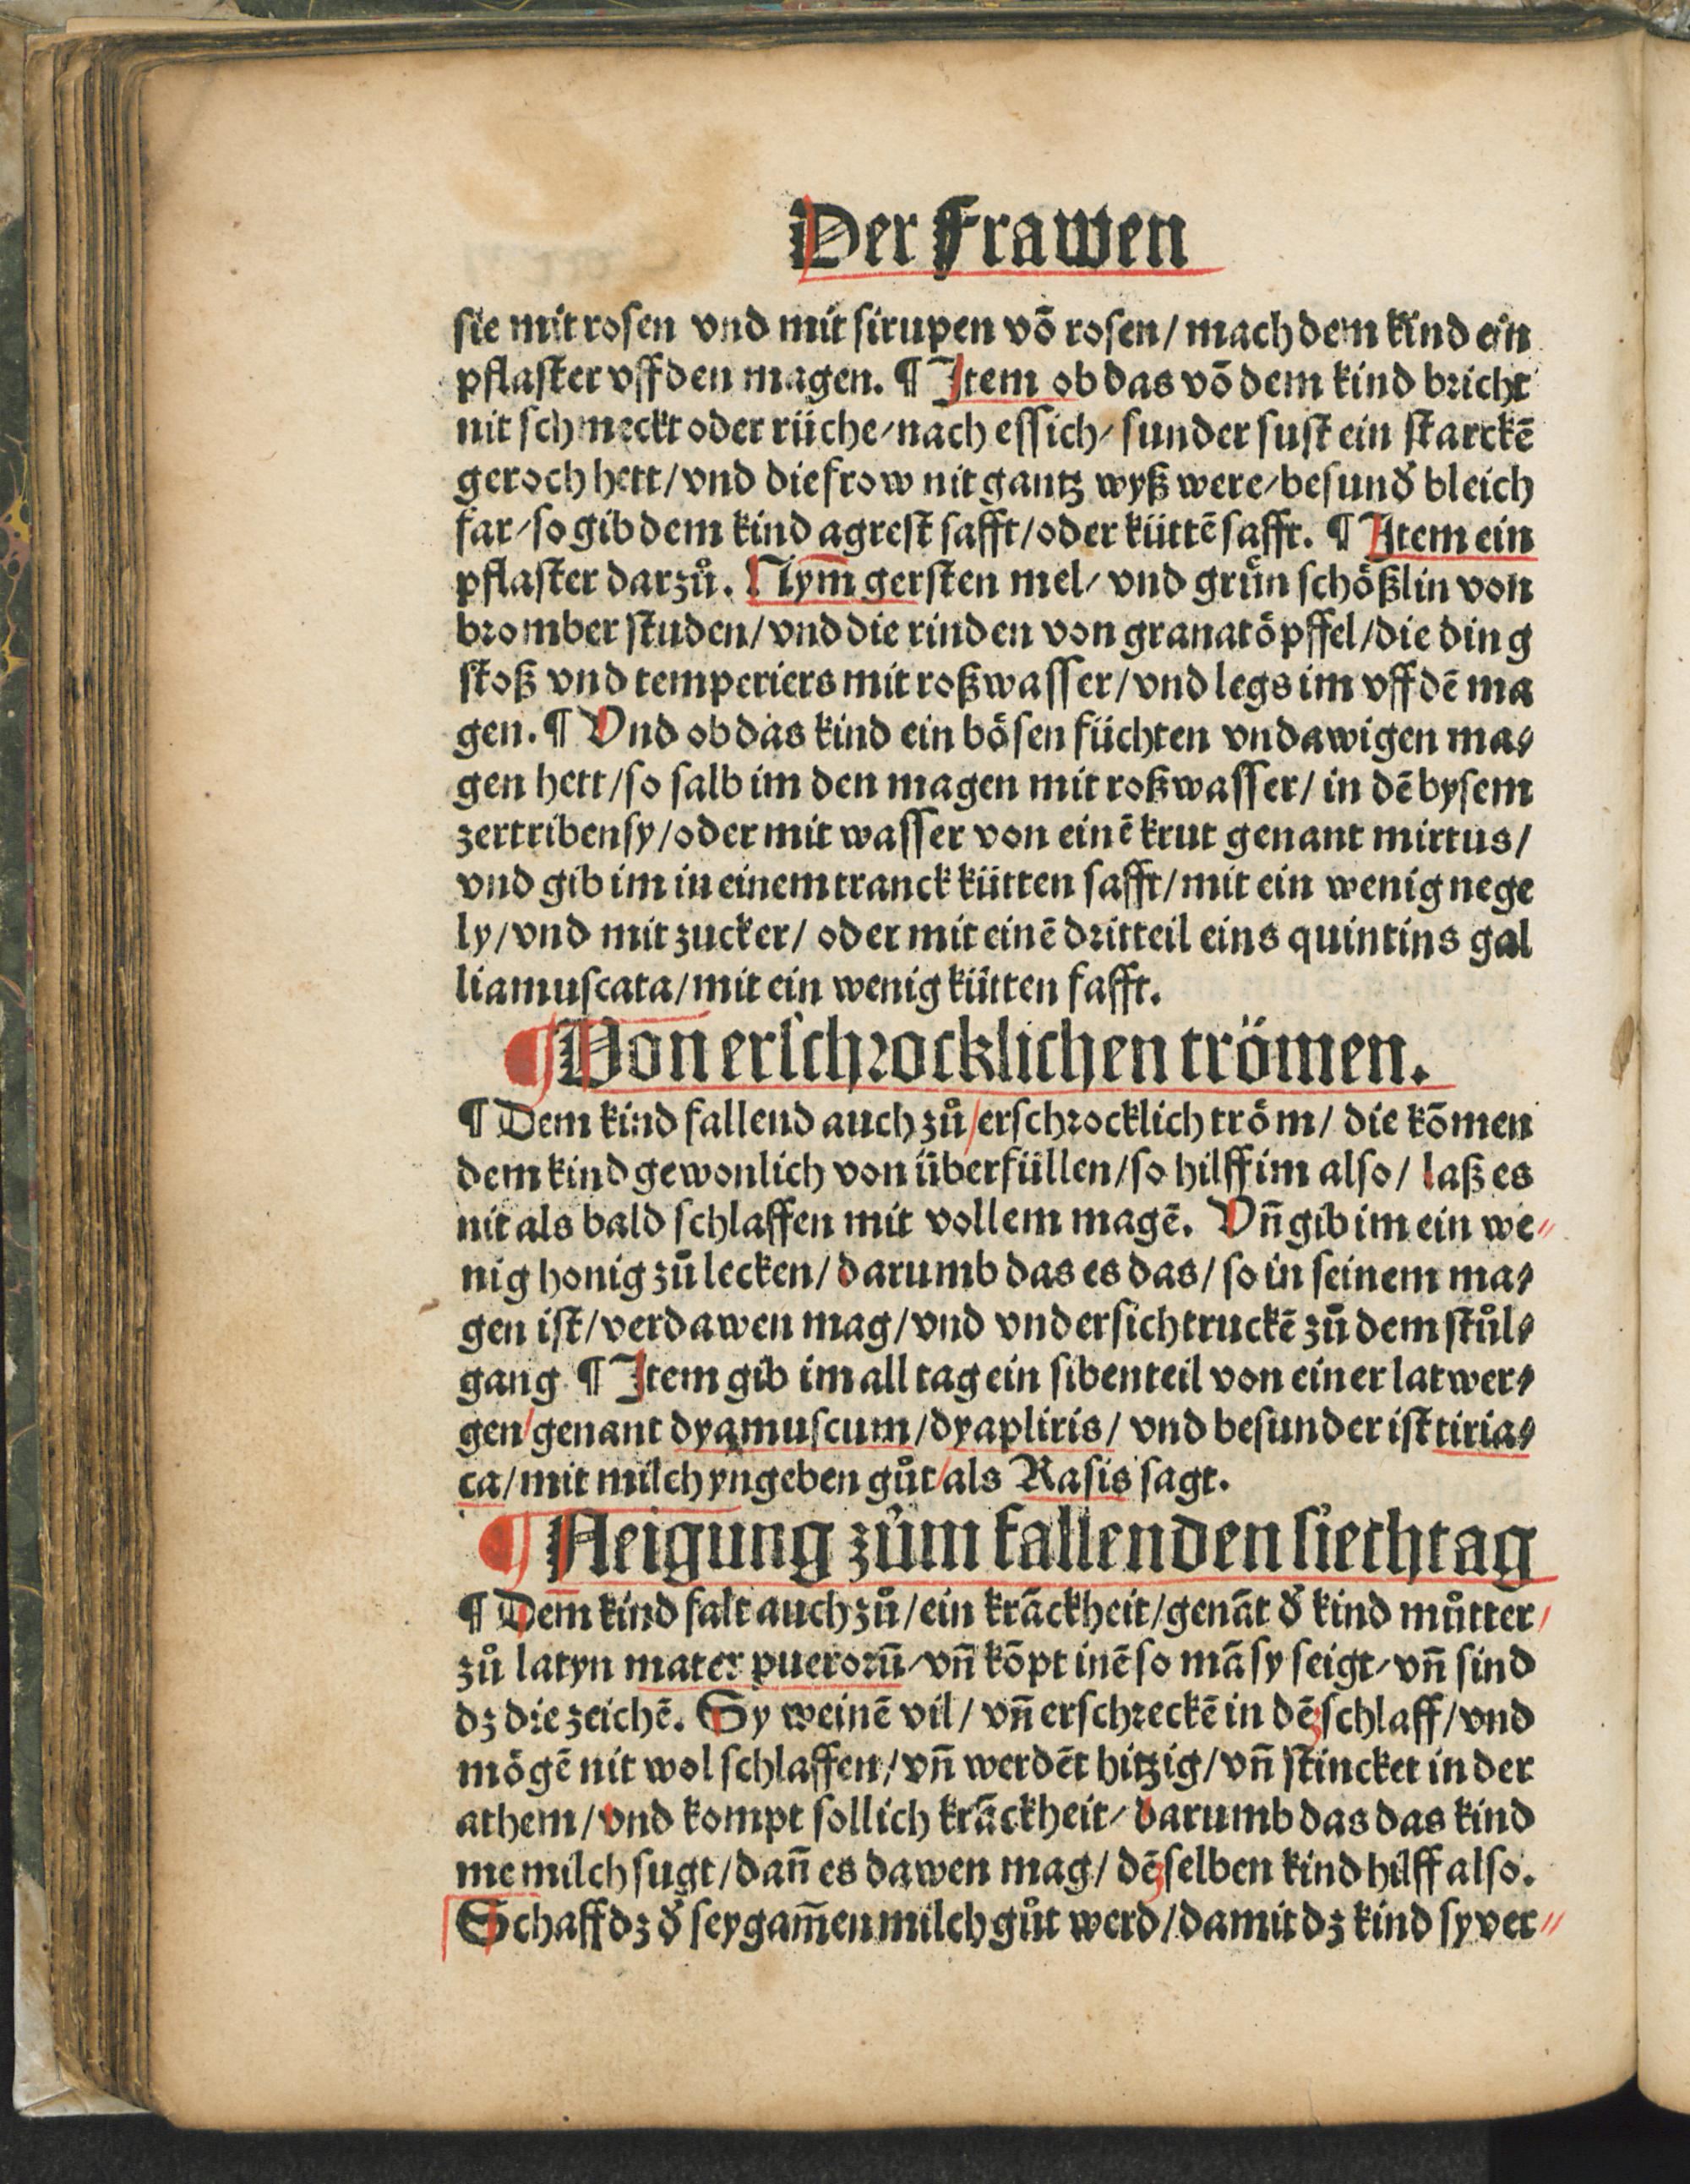 Der Frawen
sie mit rosen vnd mit sirupen võ rosen/ mach dem kind ein
pflaster vff den magen. ¶ Item ob das võ dem kind bricht
nit schmeckt oder rüche/ nach essich/ sunder sust ein starckē
geroch hett/ vnd die frow nit gantz wyß were/ besunđ bleich
far/ so gib dem kind agrest safft/ oder küttē safft. ¶ Item ein
pflaster darzů. Nym gersten mel/ vnd grün schößlin von
bromber studen/ vnd die rinden von granatöpffel/ die ding
stoß vnd temperiers mit roßwasser/ vnd legs im vff dē ma
gen. ¶ Vnd ob das kind ein bösen füchten vndawigen ma⸗
gen hett/ so salb im den magen mit roßwasser/ in dē bysem
zertriben sy/ oder mit wasser von einē krut genant mirtus/
vnd gib im in einem tranck kütten safft/ mit ein wenig nege
ly/ vnd mit zucker/ oder mit einē dritteil eins quintins gal
liamuscata/ mit ein wenig kütten safft.
¶ Von erschrocklichen trömen.
¶ Dem kind fallend auch zů/ erschrocklich tröm/ die kõmen
dem kind gewonlich von überfüllen/ so hilff im also/ laß es
nit als bald schlaffen mit vollem magē. Vñ gib im ein we
nig honig zů lecken/ darumb das es das/ so in seinem ma⸗
gen ist/ verdawen mag/ vnd vndersich truckē zů dem stůl⸗
gang ¶ Item gib im all tag ein sibenteil von einer latwer⸗
gen/ genant dyamuscum/ dyapliris/ vnd besunder ist tiria⸗
ca/ mit milch yngeben gůt/ als Rasis sagt.
¶ Neigung zům fallenden siethtag
¶ Dem kind falt auch zů/ ein krãckheit/ genãt đ kind můtter/
zů latyn mater puerorū/ vñ kõpt inē so mã sy seigt/ vñ sind
dz die zeichē. Sy weinē vil/ vñ erschreckē in dē schlaff/ vnd
mögē nit wol schlaffen/ vñ werdēt hitzig/ vñ stincket in der
athem/ vnd kompt sollich krãckheit/ darumb das das kind
me milch sugt/ dañ es dawen mag/ dē selben kind hilff also.
Schaff dz đ seygam̄en milch gůt werd/ damit dz kind sy ver